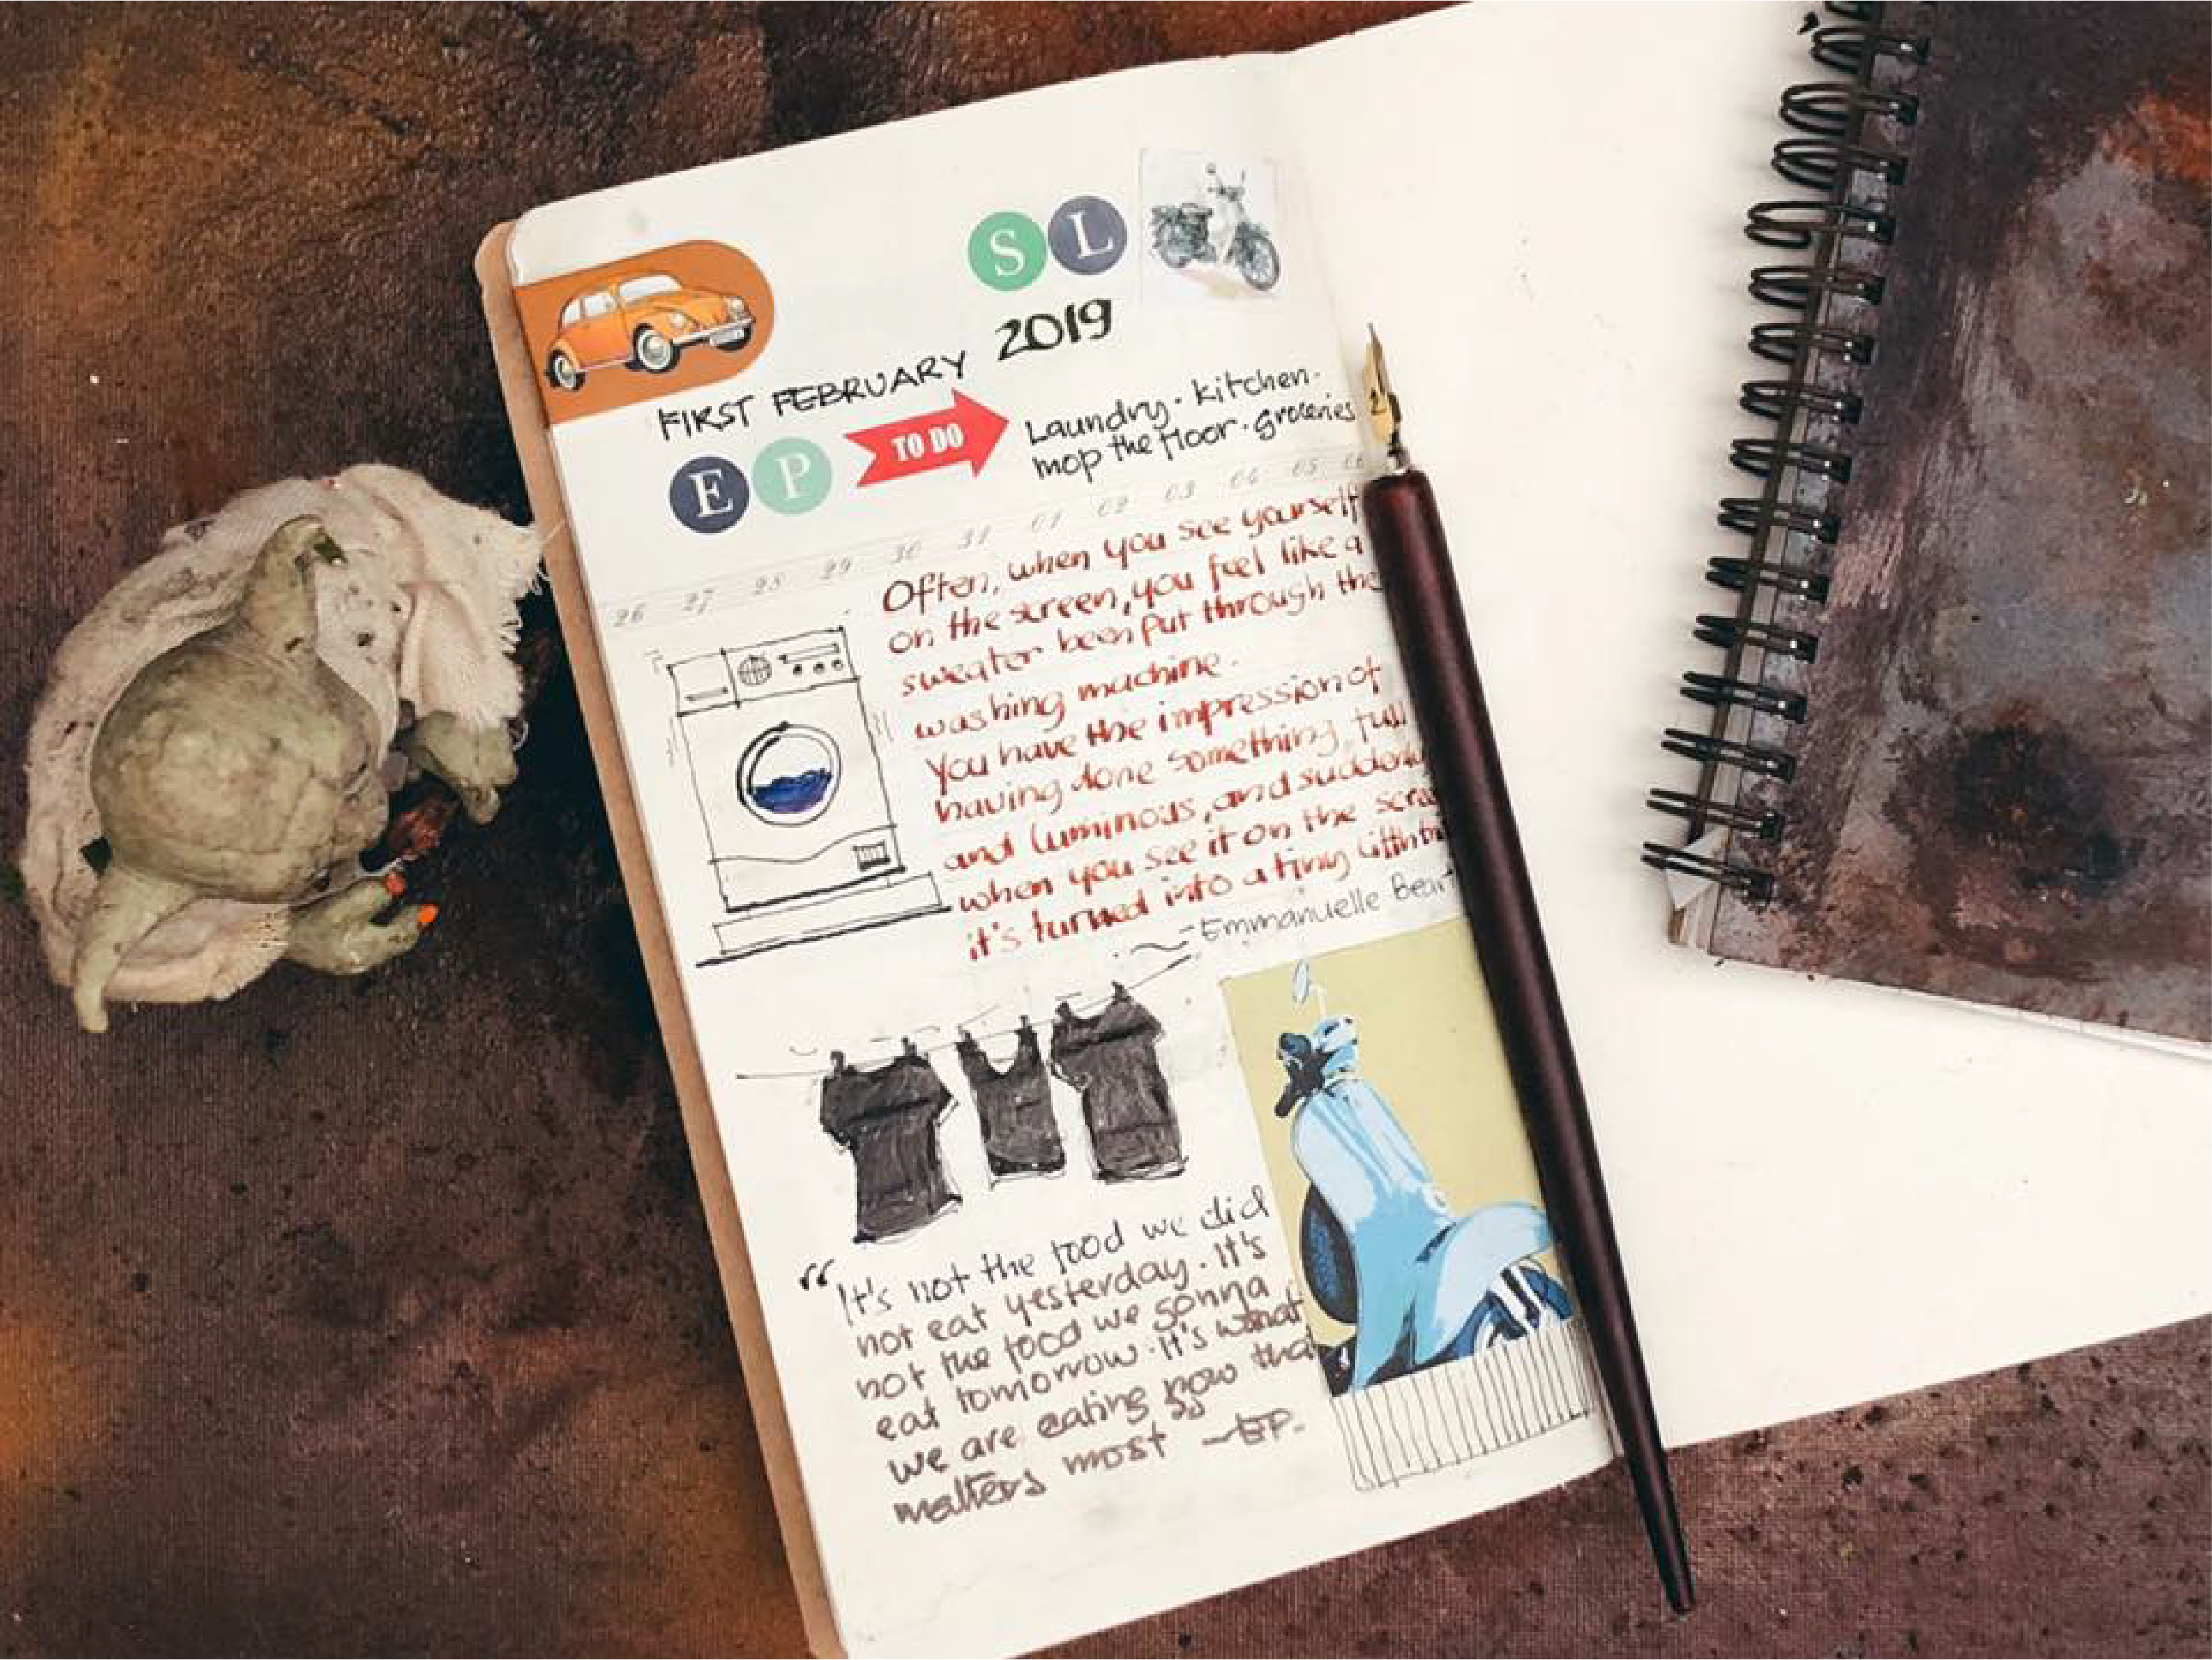 S L
2019
FIRST FEBRUARY
E P
TO DO
Laundry. kitchen.
mop the floor. groceries
26 27 28 29 30 31 01 02 03 04 05 06
Often, when you see yourself
on the screen, you feel like a
sweater been put through the
washing machine.
You have the impression of
having done something full
and luminous, and suddenly
when you see it on the
it's turned into a tiny
- Emmanuelle Beart
"It's not the food we did
not eat yesterday. It's
not the food we gonna
eat tomorrow. It's what
we are eating now that
matters most - EP.